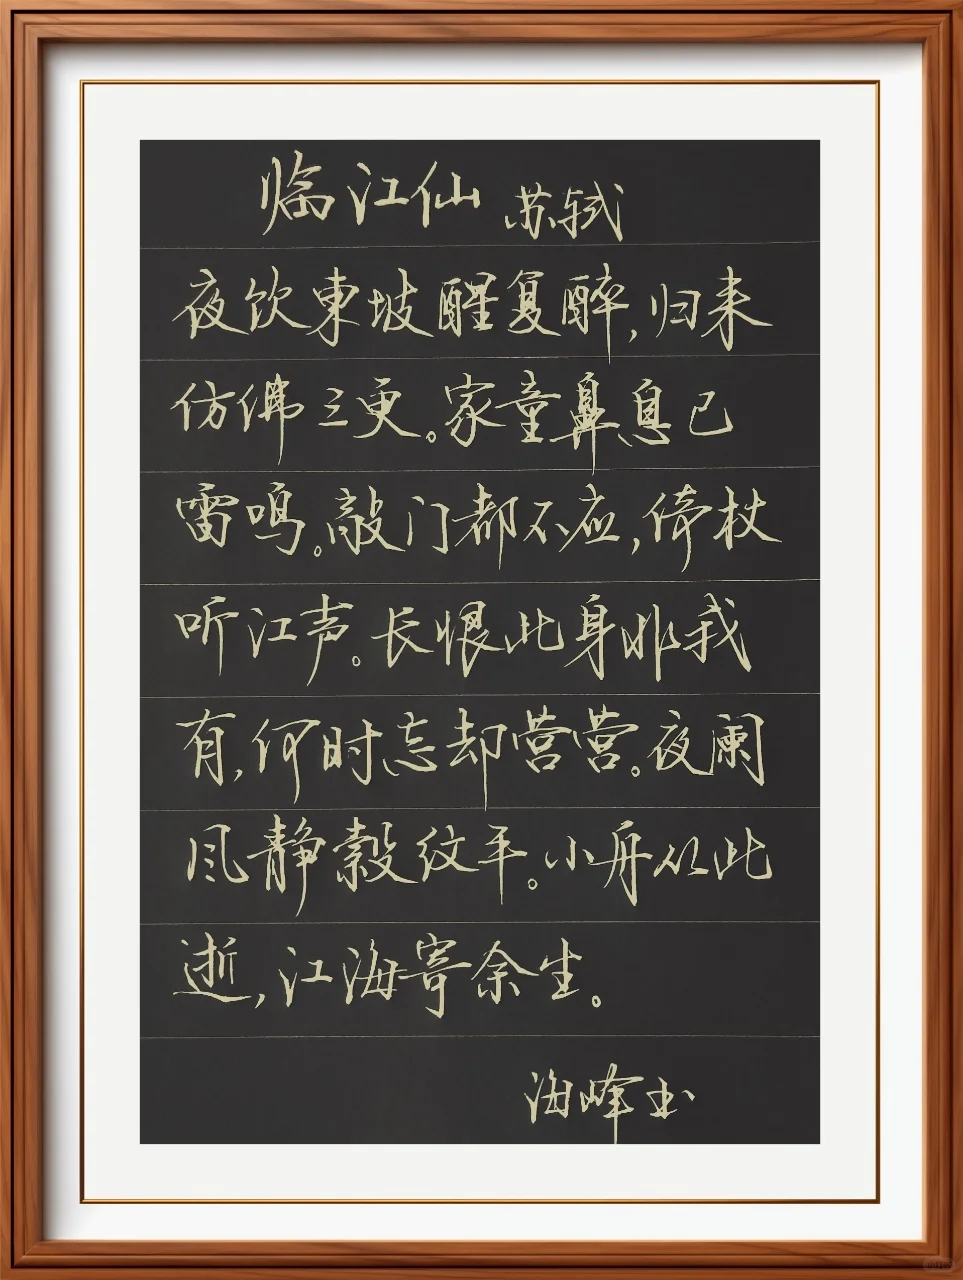 临江仙 苏轼
夜饮東坡醒复醉,归来
仿佛三更。家童鼻息已
雷鸣。敲门都不应,倚杖
听江声。长恨此身非我
有,何时忘却营营。夜阑
风静縠纹平。小舟从此
逝,江海寄余生。
海峰书